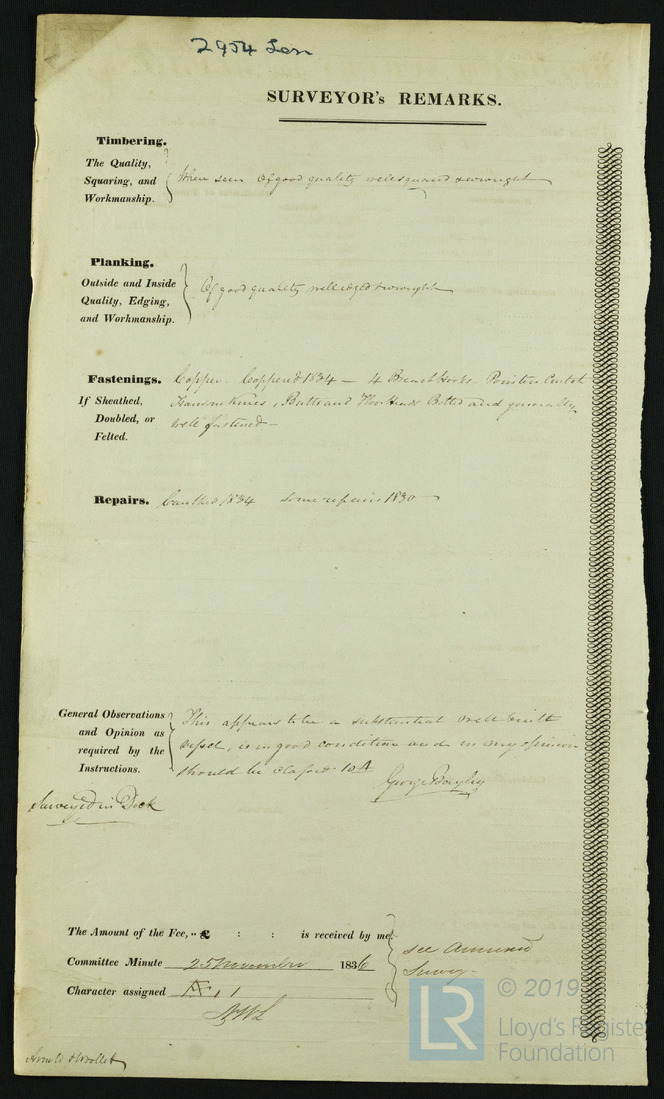 2954 Lon
SURVEYOR's REMARKS.
Timbering.
The Quality, Squaring, and Workmanship. When seen Of good quality well squared & wrought
Planking.
Outside and Inside Quality, Edging, and Workmanship. Of good quality well edged & wrought
Fastenings. Copper. Coppered 1834 — 4 Breast Hooks Pointers Crutch
If Sheathed, Transom Knees, Butts and Floor Heads Bolted and generally
Doubled, or well fastened —
Felted.
Repairs. Caulked 1834 some repairs 1830 —
General Observations This appears to be a substantial well built
and Opinion as vessel, is in good condition and in my opinion
required by the Instructions. should be classed 10 A
George Bayley
Surveyed in Dock
The Amount of the Fee, ·· £ : : is received by me
Committee Minute 25 November 1836
Character assigned Æ 1
see annexed
Survey
© 2019
LR
Lloyd's Register
Foundation